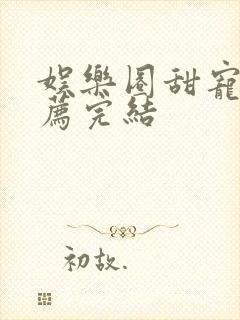 娱樂圈甜寵
薦完結
初故.